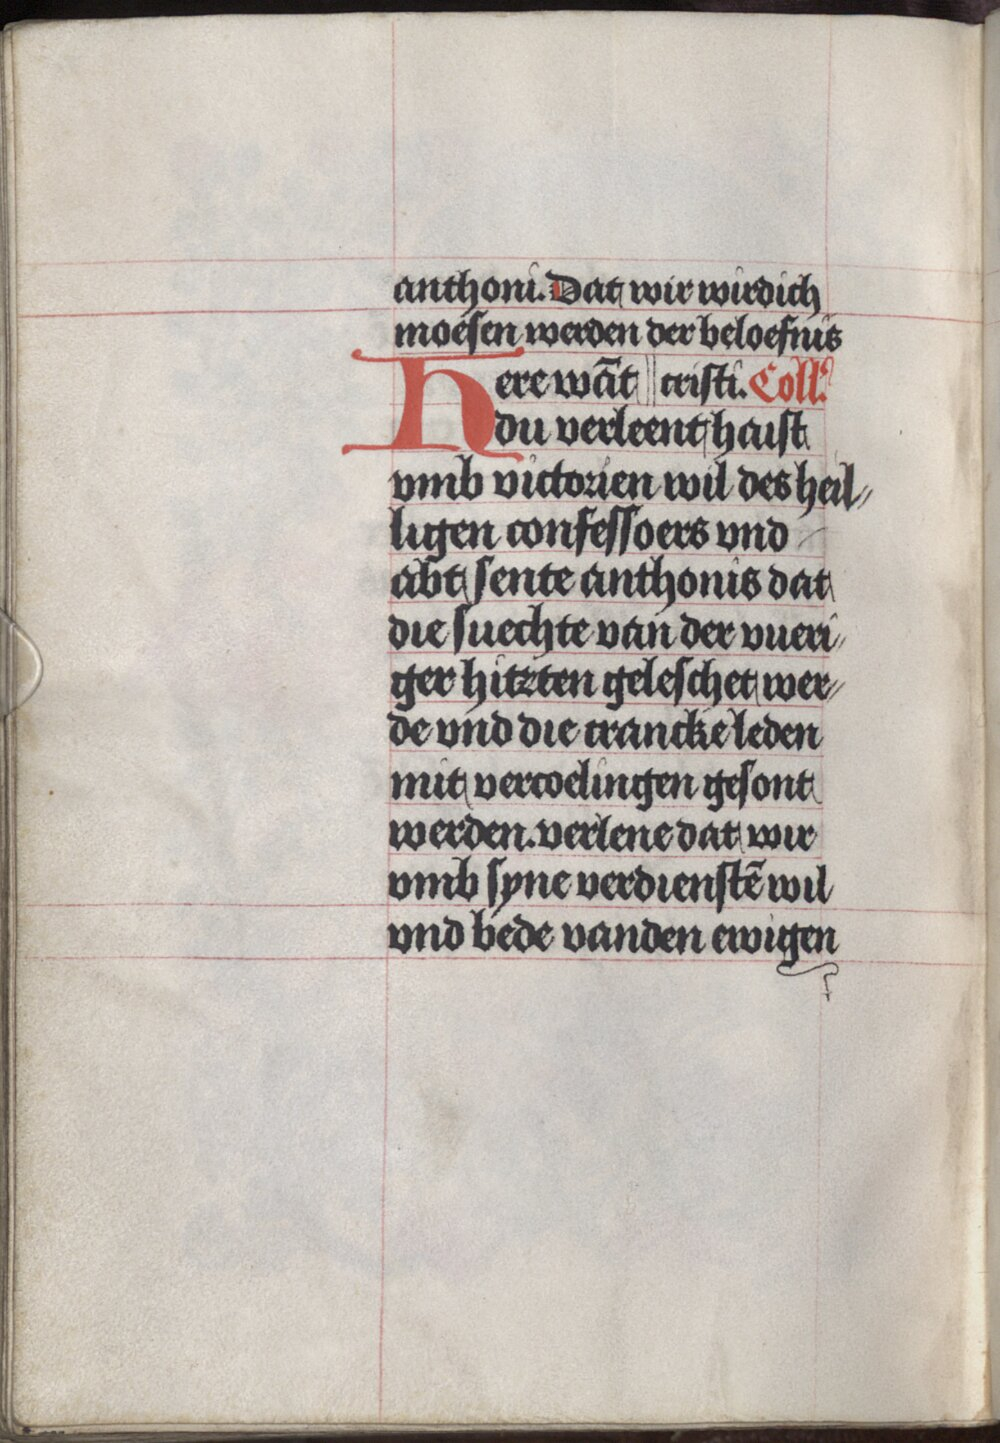 anthoni. Dat wir wirdich
moesen werden der beloefnis
Here wāt cristi. Coll.
du verleent haist
vmb victorien wil des heil-
ligen confessoers vnd
abt sente anthonis dat
die suechte van der vueri-
ger hitzten geleschet wer-
de vnd die crancke leden
mit vercoelingen gesont
werden. verlene dat wir
vmb syne verdienstē wil
vnd bede vanden ewigen